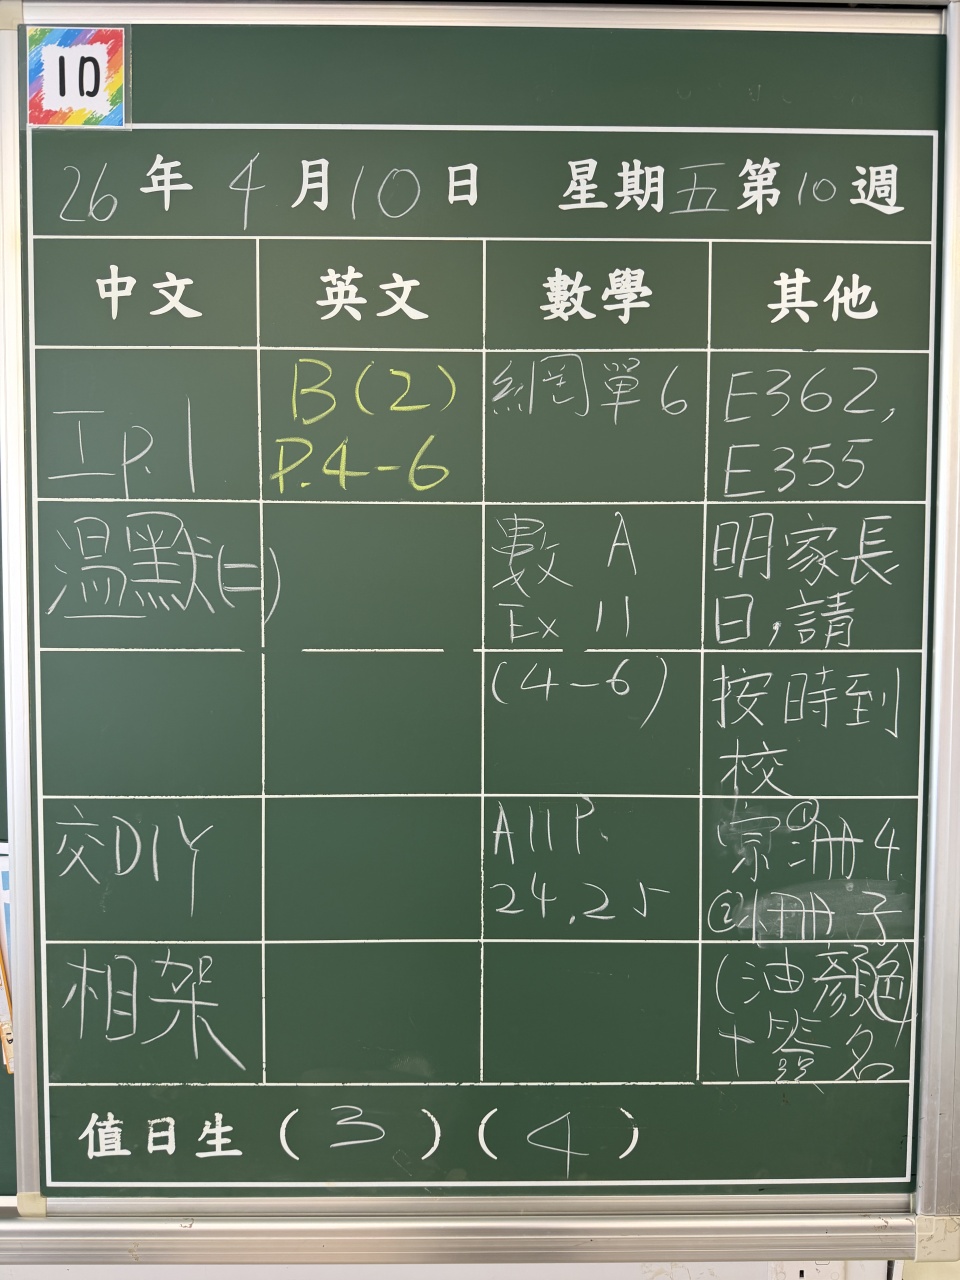 1D
26年4月10日 星期五第10週
中文 英文 數學 其他
工P.1
溫默(二)
交DIY
相架
B(2)
P.4-6
網單6
數 A
Ex 11
(4-6)
A11P.
24,25
E362,
E355
明家長
日,請
按時到
校
宗①冊4
②小冊子
(油顏色)
+簽名
值日生(3)(4)